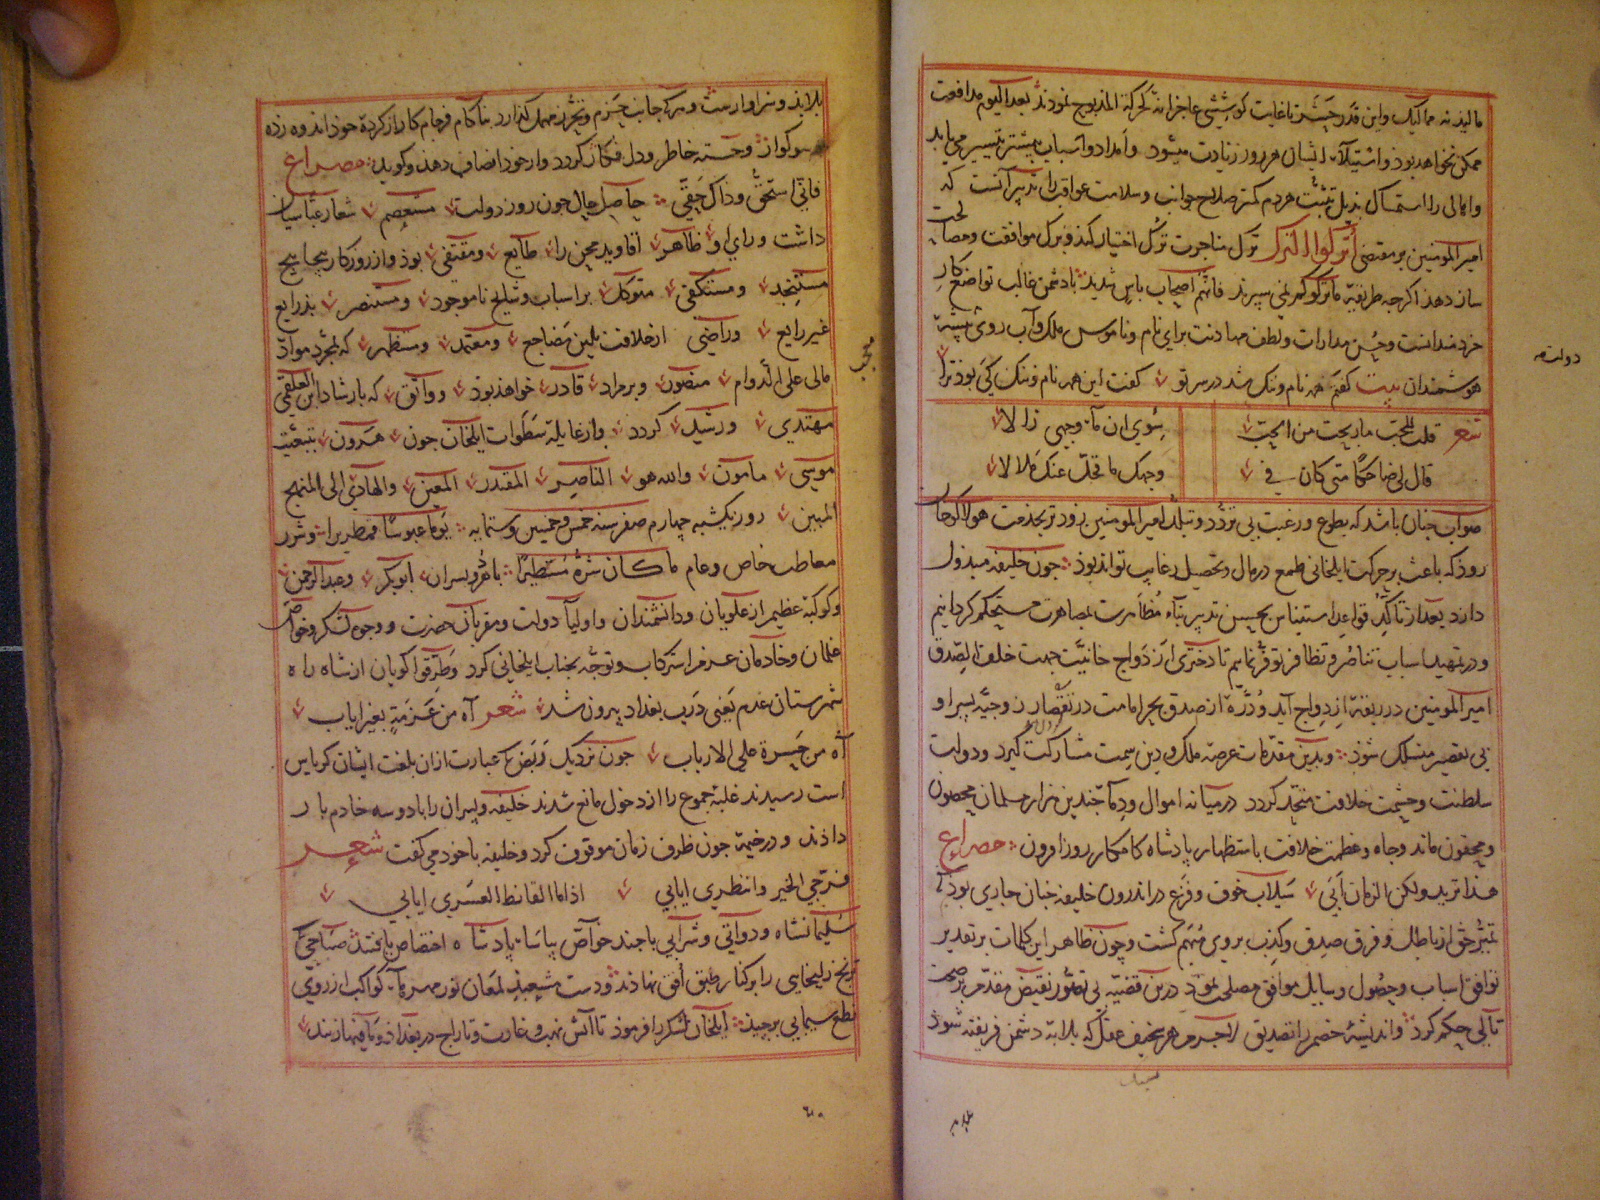 مالیذنه ممالیک و این قدر جیش تا غایت کوششی عاجزانه کحرکة المذبوح نمودند بعد الیوم مدافعت
ممکن نخواهد بوذ و استیلاء ایشان هر روز زیادت میشود و امداد و اسباب بیشتر تیسیر می یابد
و اهالی را استمساک بذیل تثبت هر دم کمتر صلاح جوانب و سلامت عواقب را تدبیر آنست که
امیر المومنین بر مقتضی اترکوا الترک ترک مناجزت ترک اختیار کند و ترک موافقت و مصالحت
ساز دهذ اکرجه طریقه ما ترکوکم نمی سپرند فانهم اصحاب باس شدید با دشمن غالب تواضع کار
خردمندانست و حسن مدارات و لطف مهادنت برای نام و ناموس ملک و آب روی پیشه
هوشمندان بیت کفتم همه نام و ننک شد در سر تو کفت این همه نام و ننک کی بوذ ترا
دولت
شعر قلت للمحب ما ربحت من الحب
سوی ان ماء وجهی زالا
قال لی ضاحکا متی کان فی
وجهک ماء تخل عنک ملالا
صواب جنان باشد که بطوع و رغبت بی تردد و تبلد امیر المومنین زود تر بخدمت هولاکو خان
روذ که باعث بر حرکت ایلخانی طمع در مال و تحصیل رغایب تواند بوذ جون خلیفه مبذول
دارد بعد از تاکید قواعد استیناس بحسن تدبیر بناء مظاهرت بمصاهرت مستحکم کردانیم
و در تمهید اسباب تناصر و تظافر توفر نمایم تا دختری از ازدواج خانیت جهت خلف الصدق
امیر المومنین در ربقة ازدواج آید و درة از صدف بحر امامت در تقصار زوجیت پسر او
بی تقصیر منسلک شود و بدین مقدمات عرصه ملک و دین سمت مشارکت کیرد و دولت
سلطنت و حشمت خلافت متحد کردد در میانه اموال و دماء جندین هزار مسلمان محصون
و محقون ماند و جاه و عظمت خلافت باستظهار پادشاه کامکار روز افزون مصراع
هذا نرید ولکن الزمان ابی سیلاب خوف و فزع در اندرون خلیفه جنان جاری بوذ که
تمییز حق از باطل و فرق صدق و کذب بر وی مبهم کشت و چون ظاهر این کلمات بر تقدیر
توافق اسباب و حصول وسایل موافق مصلحت نمود درین قضیه بی تصور نقیض مقدم بر صحت
تالی حکم کرد و اندیشة خصم را تصدیق لاجرم هر نحیف عقل که بلابه دشمن فریفته شوذ
بلا بذو سزاوارست و هرکه جانب حزم و تحرز مهمل کذارد بناکام فرجام کار از کردة خود اندوه زده
و سوکوار و خسته خاطر و دل فکار کردد و از خود انصاف دهد و کوید مصراع
فانی استحق و ذاک حقی حاصل حال جون روز دولت مستعصم شعار عباسیان
داشت و رای او ظاهر اقاوید محن را طایع و مقتفی بوذ و از روزکار بیجابیح
مستنجد و مستکفی متوکل بر اسباب و نتایج ناموجود و مستنصر بذرایع
غیر رایع و راضی از خلافت بلین مضاجع و معتمد و مستظهر که بمجرد مواد
مالی علی الدوام منصور و بر مراد قادر خواهد بوذ و واثق که بارشاد ابن العلقمی
مهتدی و رشید کردد و از غایله سطوات ایلخان جون هرون بتبعیت
موسی مامون والله هو الناصر المقتدر المعین والهادی الی المنهج
المبین روز یکشنبه چهارم صفر سنه خمس و خمسین و ستمایه یوما عبوسا قمطریرا و شرر
معاطب خاص و عام ما کان شره مستطیرا با هر دو پسران ابوبکر و عبد الرحمن
و کوکبه عظیم از علویان و دانشمندان و اولیاء دولت و مقربان حضرت و وجوه لشکر و خواص
غلمان و خادمان عزم فراشتر کاب و توجه بجناب ایلخانی کرد و طرقوا کویان از شاه راه
شهرستان عدم یعنی درب بغداد بیرون شد شعر آه من عزمة بغیر ایاب
آه من حسرة علی الارباب جون نزدیک ربض که عبارت ازان بلغت ایشان کریاس
است رسیدند غلبه جموع را از دخول مانع شدند خلیفه و پسران را با دو سه خادم بار
داذند و در خیمة جون ظرف زمان موقوف کرد و خلیفه با خود می کفت شعر
فرجی الخیر وانتظری ایابی اذا ما القانط العنزی آبا
سلیمانشاه و دواتی و شرابی با جند خواص بیاسا پادشاه اختصاص یافتند صباحی که
ترنج زلیخایی را بر کنار طبق افق نهادند و دست مشعبذ لمعان نور مهره ها کواکب از روی
نطع سیمابی برجیذ ایلخان لشکر را فرموذ تا آتش نهب و غارت و تاراج در بغداد و مافیها زنند